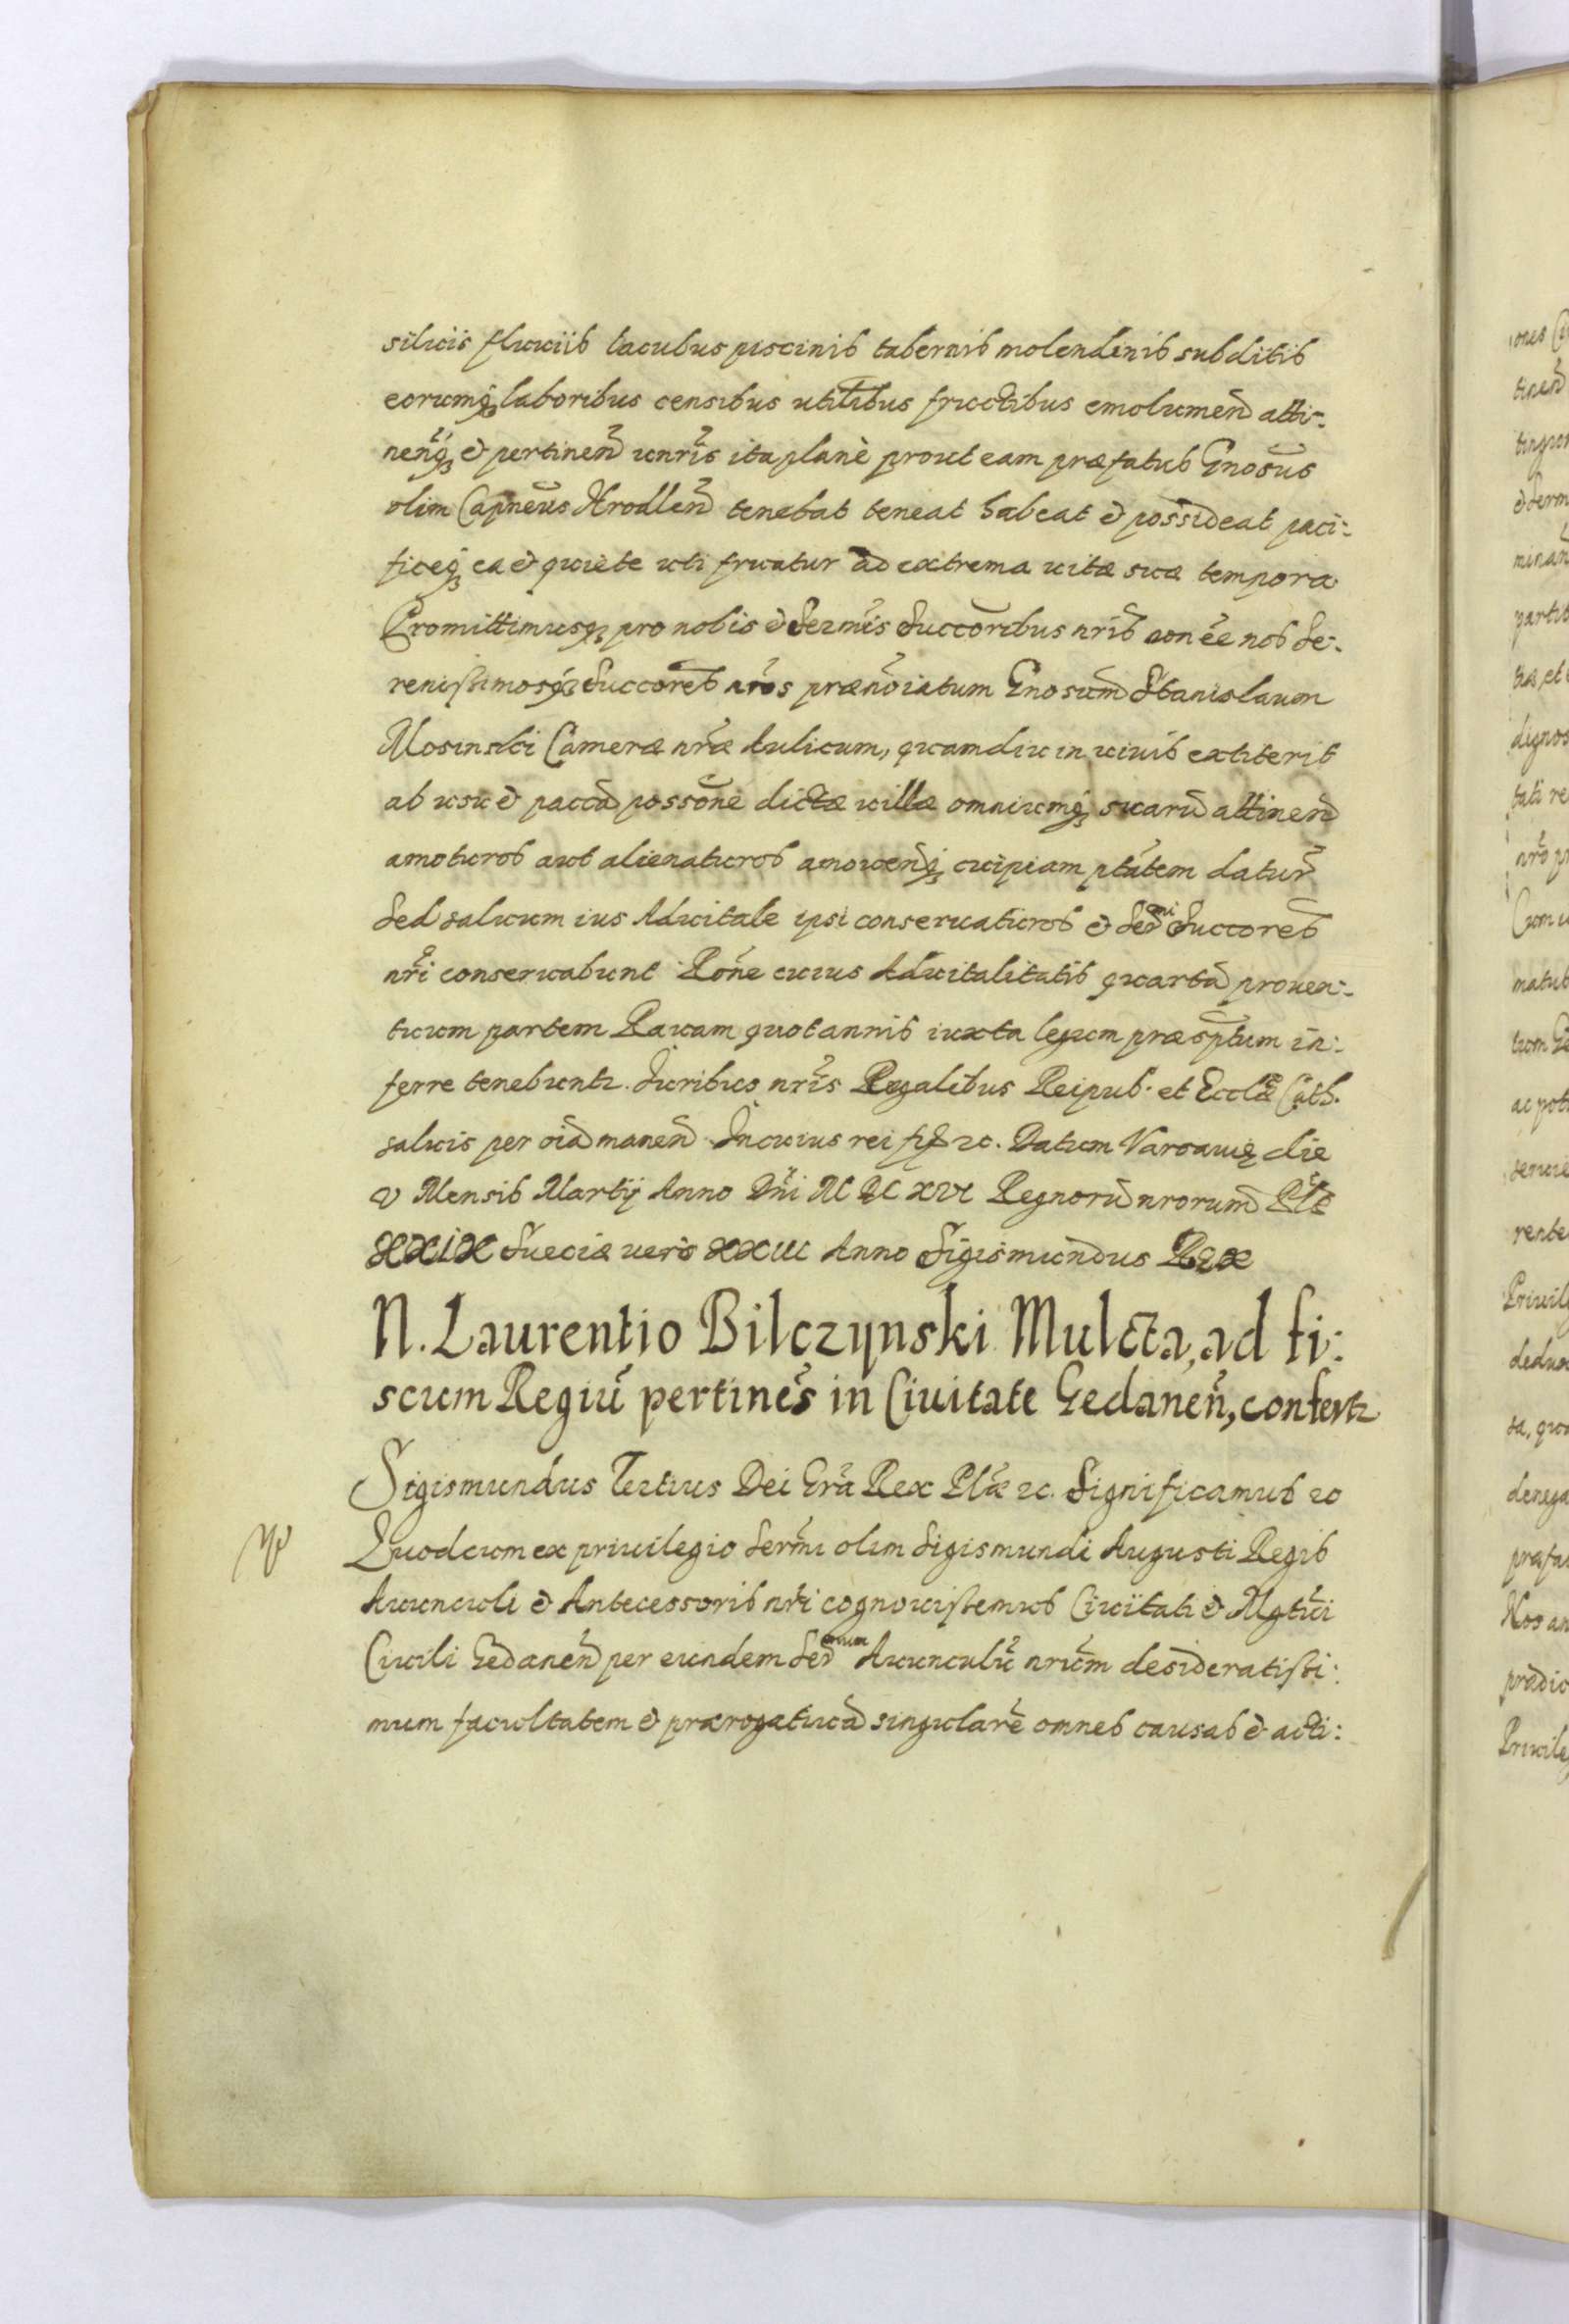 siluis fluuiis lacubus piscinis tabernis molendinis subditis
eorumq laboribus censibus utilibus fructibus emolumen atti:
nenq & pertinen vnris ita planè prout eam præfatus Gnosus
olim Capneus Hrodlen tenebat teneat habeat & possideat paci:
ficeq ea & quiete uti fruatur ad extrema uitæ suæ tempora.
Promittimusq pro nobis & Sermis Succoribus nris non ee nos Se:
renissimosq Succores nros prænoiatum Gnosum Stanislaum
Mosinski Cameræ nræ Aulicum, quamdiu in uiuis extiterit
ab usu & pacca possone dictæ uillæ omniumq suaru attinen
amoturos aut alienaturos amouendiq cuipiam ptatem datur
Sed saluum ius Aduitale ipsi conseruaturos & Sermi Succores
nri conseruabunt Rone cuius Aduitalitatis quarta prouen:
tuum partem Rauam quotannis iuxta legum præsptum in:
ferre tenebuntr. Iuribus nris Regalibus Reipub. et Ecclæ Cath.
saluis per oia manen In cuius rei fid &c. Datum Varsauię die
V Mensis Martij Anno Dni M DC XVI Regnoru nrorum Plæ
XXIX Sueciæ uero XXIII Anno Sigismundus Rex
N. Laurentio Bilczynski Mulcta, ad fi:
scum Regiu pertines in Ciuitate Gedanen, confertr
Sigismundus Tertius Dei Gra Rex Plæ &c. Significamus &c
Quod cum ex priuilegio Sermi olim Sigismundi Augusti Regis
Auunculi & Antecessoris nri cognouissemus Ciuitati & Mgtui
Ciuili Gedanen per eundem Sermum Auunculu nrum desideratissi:
mum facultatem & prærogatiua singulare omnes causas & acti: